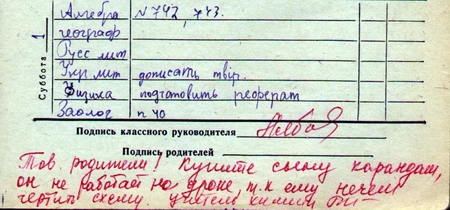 Суббота 1
Алгебра № 742, 743.
географ
Русс лит
Укр лит дописать твір.
Физика подготовить реферат
Заолог п 40
Подпись классного руководителя
Подпись родителей
Тов. родители! Купите сыну карандаш,
он не работает на уроке, т.к ему нечем
чертить схему. учитель химии